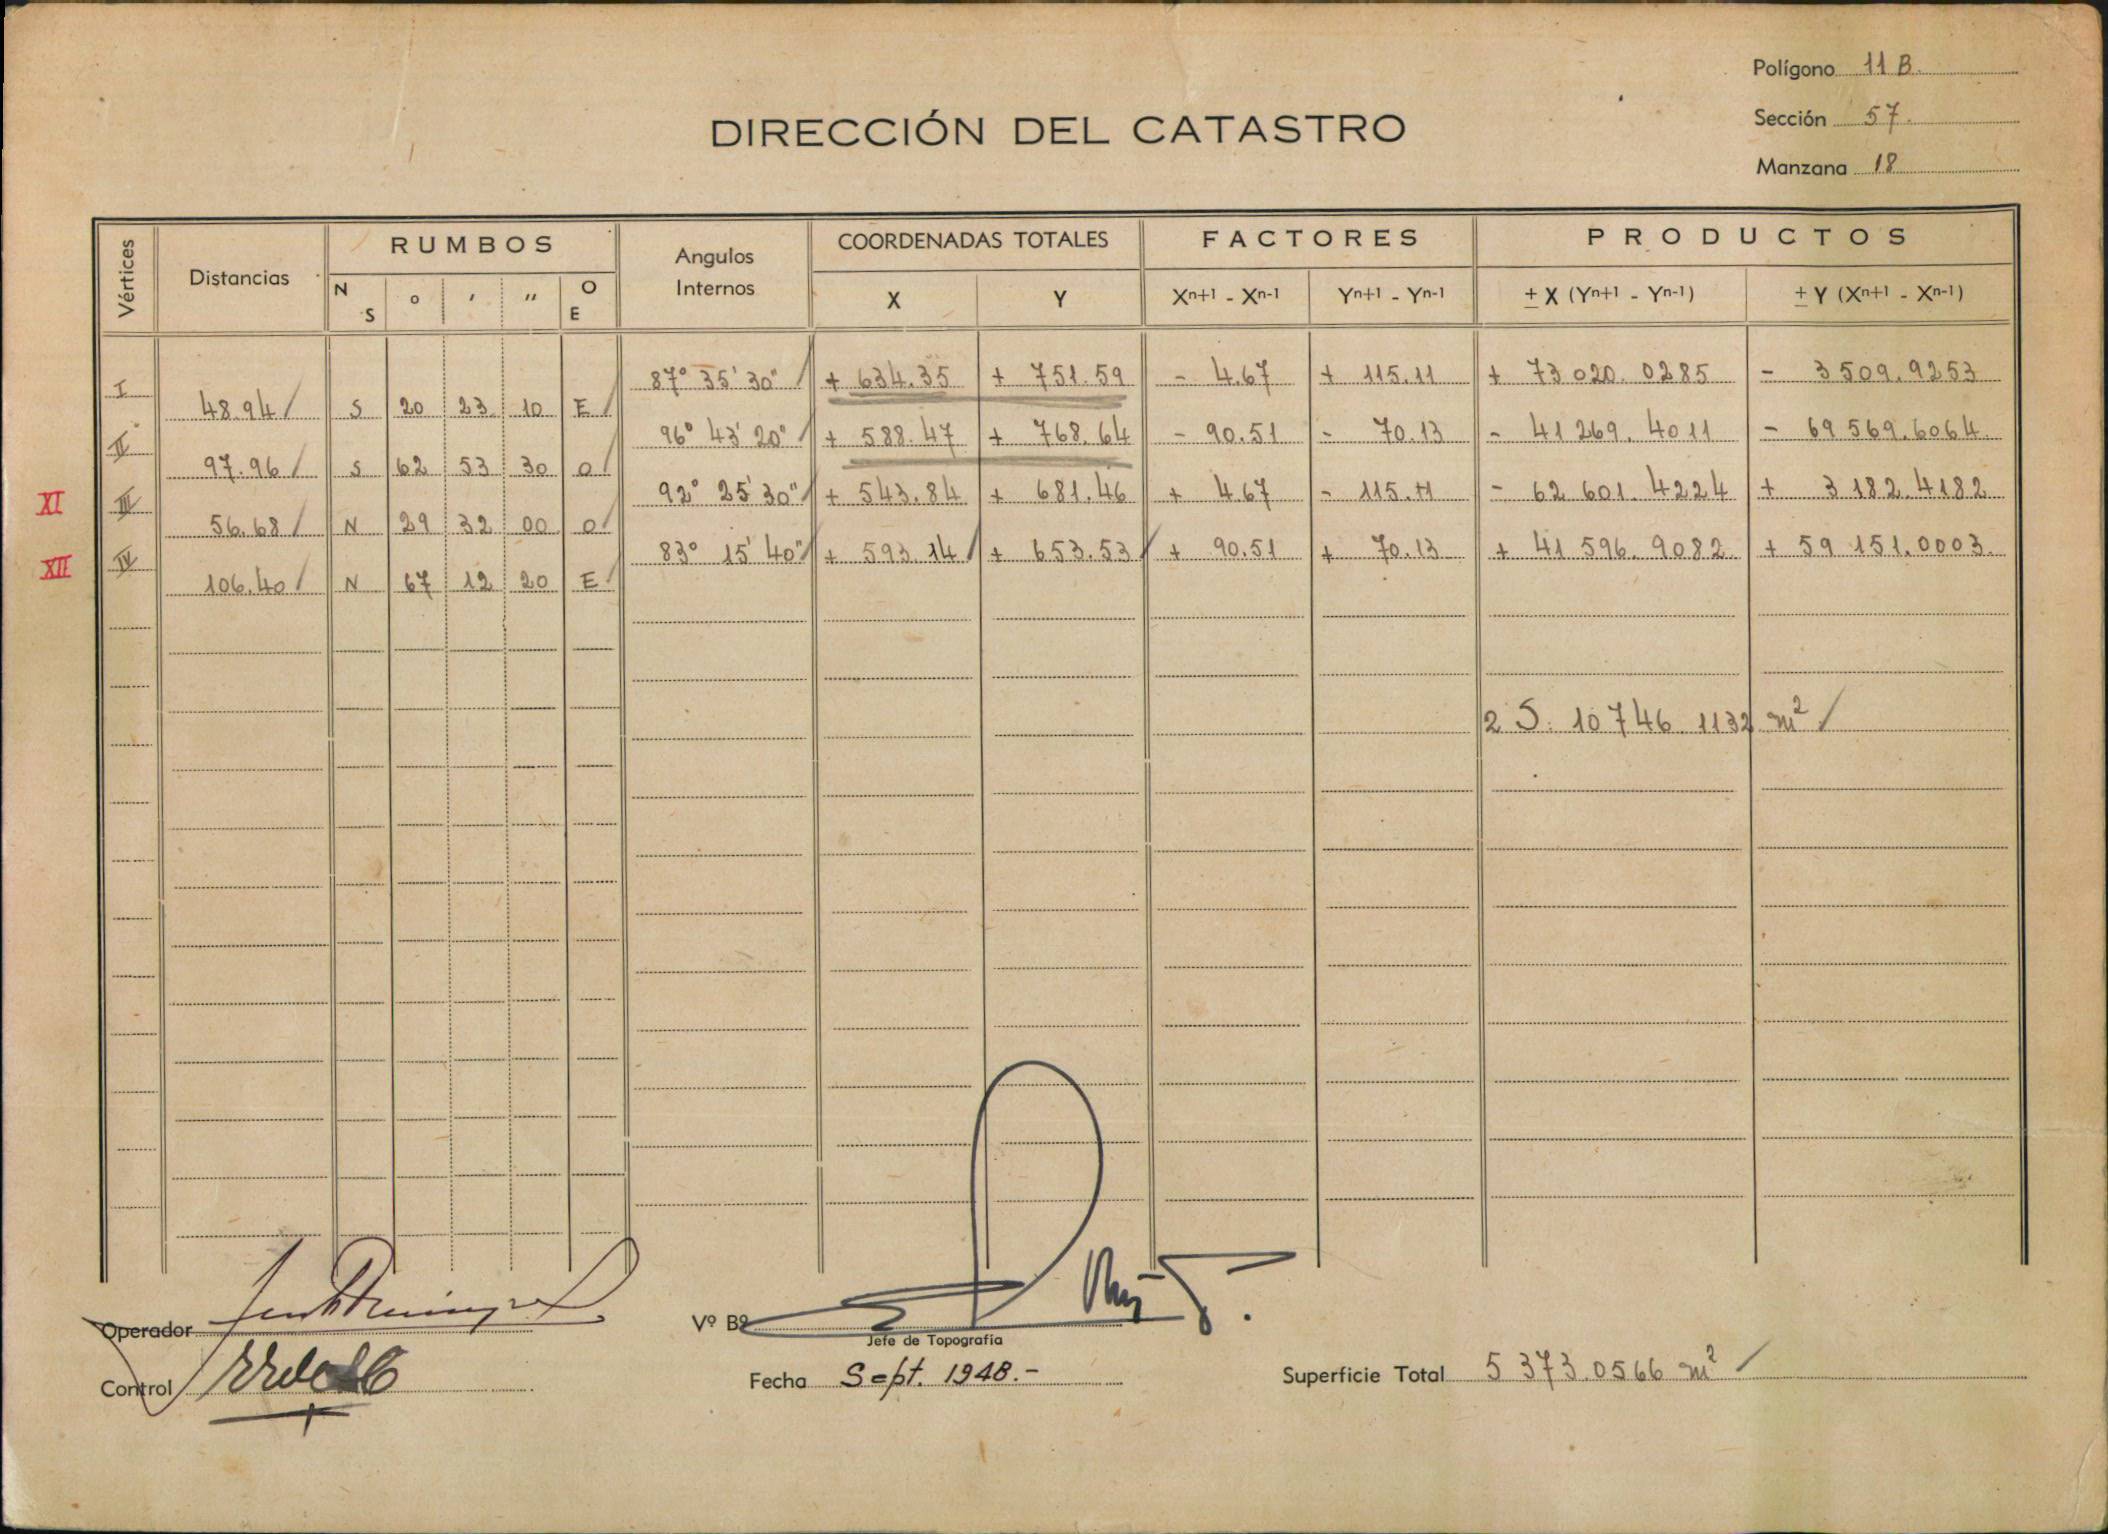 Polígono 11 B.
Sección 57.
Manzana 18
DIRECCIÓN DEL CATASTRO
Vértices Distancias RUMBOS Angulos Internos COORDENADAS TOTALES FACTORES PRODUCTOS
N S o ′ ″ O E X Y Xn+1 - Xn-1 Yn+1 - Yn-1 ± X (Yn+1 - Yn-1) ± Y (Xn+1 - Xn-1)
I 87° 35' 30" + 634.35 + 751.59 - 4.67 + 115.11 + 73 020. 0285 - 3 509. 9253
48.94 S 20 23 10 E
II 96° 43' 20" + 588.47 + 768.64 - 90.51 - 70.13 - 41 269. 4011 - 69 569. 6064
97.96 S 62 53 30 O
XI III 92° 25' 30" + 543.84 + 681.46 + 4.67 - 115.11 - 62 601. 4224 + 3 182. 4182
56.68 N 29 32 00 O
XII IV 83° 15' 40" + 593.14 + 653.53 + 90.51 + 70.13 + 41 596. 9082 + 59 151. 0003
106.40 N 67 12 20 E
2 S. 10 746. 1132 m²
Operador
Vº Bº
Jefe de Topografía
Control
Fecha Sept. 1948.-
Superficie Total 5 373.0566 m²